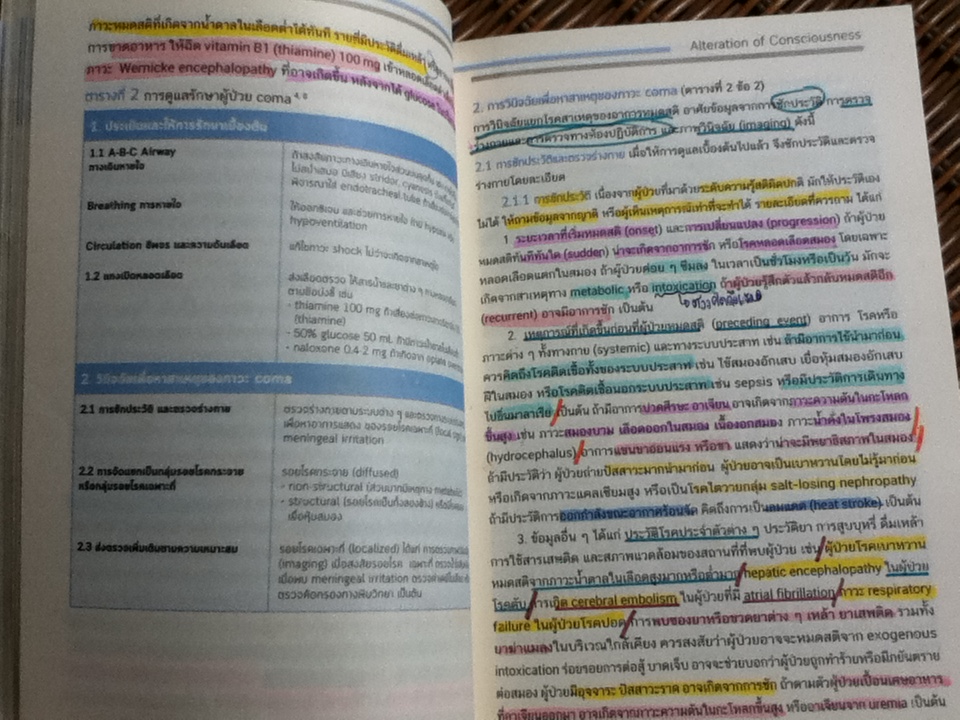 ภาวะหมดสติที่เกิดจากน้ำตาลในเลือดต่ำได้ทันที รายที่มีประวัติดื่มเหล้า
การขาดอาหาร ให้ฉีด vitamin B1 (thiamine) 100 mg เข้าหลอดเลือดดำ
ภาวะ Wernicke encephalopathy ที่อาจเกิดขึ้น หลังจากได้ glucose
ตารางที่ 2 การดูแลรักษาผู้ป่วย coma
1. ประเมินและให้การรักษาเบื้องต้น
1.1 A-B-C Airway
ทางเดินหายใจ
ถ้าสงสัยภาวะทางเดินหายใจส่วนบนอุดกั้น
ไม่สม่ำเสมอ มีเสียง stridor, cyanosis
พิจารณาใส่ endotracheal tube
Breathing การหายใจ
ให้ออกซิเจน และช่วยการหายใจ ถ้ามี
hypoventilation
Circulation ชีพจร และความดันเลือด
แก้ไขภาวะ shock ไม่ว่าจะเกิดจากสาเหตุใด
1.2 แทงเปิดหลอดเลือด
ส่งเลือดตรวจ ให้สารน้ำและยาต่าง ๆ
ตามข้อบ่งชี้ เช่น
- thiamine 100 mg
(thiamine)
- 50% glucose 50 mL
- naloxone 0.4-2 mg ถ้าเกิดจาก opiate
2. วินิจฉัยเพื่อหาสาเหตุของภาวะ coma
2.1 การซักประวัติ และตรวจร่างกาย
ตรวจร่างกายตามระบบต่าง ๆ และตรวจทาง
เพื่อหาอาการแสดง ของรอยโรคเฉพาะที่
meningeal irritation
2.2 การจัดแยกเป็นกลุ่มรอยโรคกระจาย
หรือกลุ่มรอยโรคเฉพาะที่
รอยโรคกระจาย (diffused)
- non-structural (ส่วนมากมีเหตุทาง metabolic
- structural (รอยโรคเป็นทั้งสองข้าง)
เยื่อหุ้มสมอง
2.3 ส่งตรวจเพิ่มเติมตามความเหมาะสม
รอยโรคเฉพาะที่ (localized) ได้แก่ การตรวจทาง
(imaging) เพื่อสงสัยรอยโรค เฉพาะที่
เมื่อพบ meningeal irritation
ตรวจคัดกรองทางพิษวิทยา เป็นต้น
Alteration of Consciousness
2. การวินิจฉัยเพื่อหาสาเหตุของภาวะ coma (ตารางที่ 2 ข้อ 2)
การวินิจฉัยแยกโรคสาเหตุของอาการหมดสติ อาศัยข้อมูลจากการซักประวัติ การตรวจ
ร่างกายและการตรวจทางห้องปฏิบัติการ และภาพวินิจฉัย (imaging) ดังนี้
2.1 การซักประวัติและตรวจร่างกาย เมื่อให้การดูแลเบื้องต้นไปแล้ว จึงซักประวัติและตรวจ
ร่างกายโดยละเอียด
2.1.1 การซักประวัติ เนื่องจากผู้ป่วยที่มาด้วยระดับความรู้สติผิดปกติ มักให้ประวัติเอง
ไม่ได้ ให้ถามข้อมูลจากญาติ หรือผู้เห็นเหตุการณ์เท่าที่จะทำได้ รายละเอียดที่ควรถาม ได้แก่
1. ระยะเวลาที่เริ่มหมดสติ (onset) และการเปลี่ยนแปลง (progression) ถ้าผู้ป่วย
หมดสติทันทีทันใด (sudden) น่าจะเกิดจากอาการชัก หรือโรคหลอดเลือดสมอง โดยเฉพาะ
หลอดเลือดแตกในสมอง ถ้าผู้ป่วยค่อย ๆ ซึมลง ในเวลาเป็นชั่วโมงหรือเป็นวัน มักจะ
เกิดจากสาเหตุทาง metabolic หรือ intoxication ถ้าผู้ป่วยรู้สึกตัวแล้วกลับหมดสติอีก
(recurrent) อาจมีอาการชัก เป็นต้น
2. เหตุการณ์ที่เกิดขึ้นก่อนที่ผู้ป่วยหมดสติ (preceding event) อาการ โรคหรือ
ภาวะต่าง ๆ ทั้งทางกาย (systemic) และทางระบบประสาท เช่น ถ้ามีอาการไข้นำมาก่อน
ควรคิดถึงโรคติดเชื้อทั้งของระบบประสาท เช่น ไข้สมองอักเสบ เยื่อหุ้มสมองอักเสบ
ฝีในสมอง หรือโรคติดเชื้อนอกระบบประสาท เช่น sepsis หรือมีประวัติการเดินทาง
ไปถิ่นมาลาเรีย เป็นต้น ถ้ามีอาการปวดศีรษะ อาเจียน อาจเกิดจากภาวะความดันในกะโหลก
ขึ้นสูง เช่น ภาวะสมองบวม เลือดออกในสมอง เนื้องอกสมอง ภาวะน้ำคั่งในโพรงสมอง
(hydrocephalus) อาการแขนขาอ่อนแรง หรือชา แสดงว่าน่าจะมีพยาธิสภาพในสมอง
ถ้ามีประวัติว่า ผู้ป่วยถ่ายปัสสาวะมากนำมาก่อน ผู้ป่วยอาจเป็นเบาหวานโดยไม่รู้มาก่อน
หรือเกิดจากภาวะแคลเซียมสูง หรือเป็นโรคไตวายกลุ่ม salt-losing nephropathy
ถ้ามีประวัติการออกกำลังขณะอากาศร้อนจัด คิดถึงการเป็นลมแดด (heat stroke) เป็นต้น
3. ข้อมูลอื่น ๆ ได้แก่ ประวัติโรคประจำตัวต่าง ๆ ประวัติยา การสูบบุหรี่ ดื่มเหล้า
การใช้สารเสพติด และสภาพแวดล้อมของสถานที่ที่พบผู้ป่วย เช่น ผู้ป่วยโรคเบาหวาน
หมดสติจากภาวะน้ำตาลในเลือดสูงมากหรือต่ำมาก hepatic encephalopathy ในผู้ป่วย
โรคตับ การเกิด cerebral embolism ในผู้ป่วยที่มี atrial fibrillation ภาวะ respiratory
failure ในผู้ป่วยโรคปอด การพบซองยาหรือขวดยาต่าง ๆ เหล้า ยาเสพติด รวมทั้ง
ยาฆ่าแมลงในบริเวณใกล้เคียง ควรสงสัยว่าผู้ป่วยอาจจะหมดสติจาก exogenous
intoxication ร่องรอยการต่อสู้ บาดเจ็บ อาจจะช่วยบอกว่าผู้ป่วยถูกทำร้ายหรือมีภยันตราย
ต่อสมอง ผู้ป่วยมีอุจจาระ ปัสสาวะราด อาจเกิดจากการชัก ถ้าตามตัวผู้ป่วยเปื้อนเศษอาหาร
ที่อาเจียนออกมา อาจเกิดจากภาวะความดันในกะโหลกขึ้นสูง หรืออาเจียนจาก uremia เป็นต้น